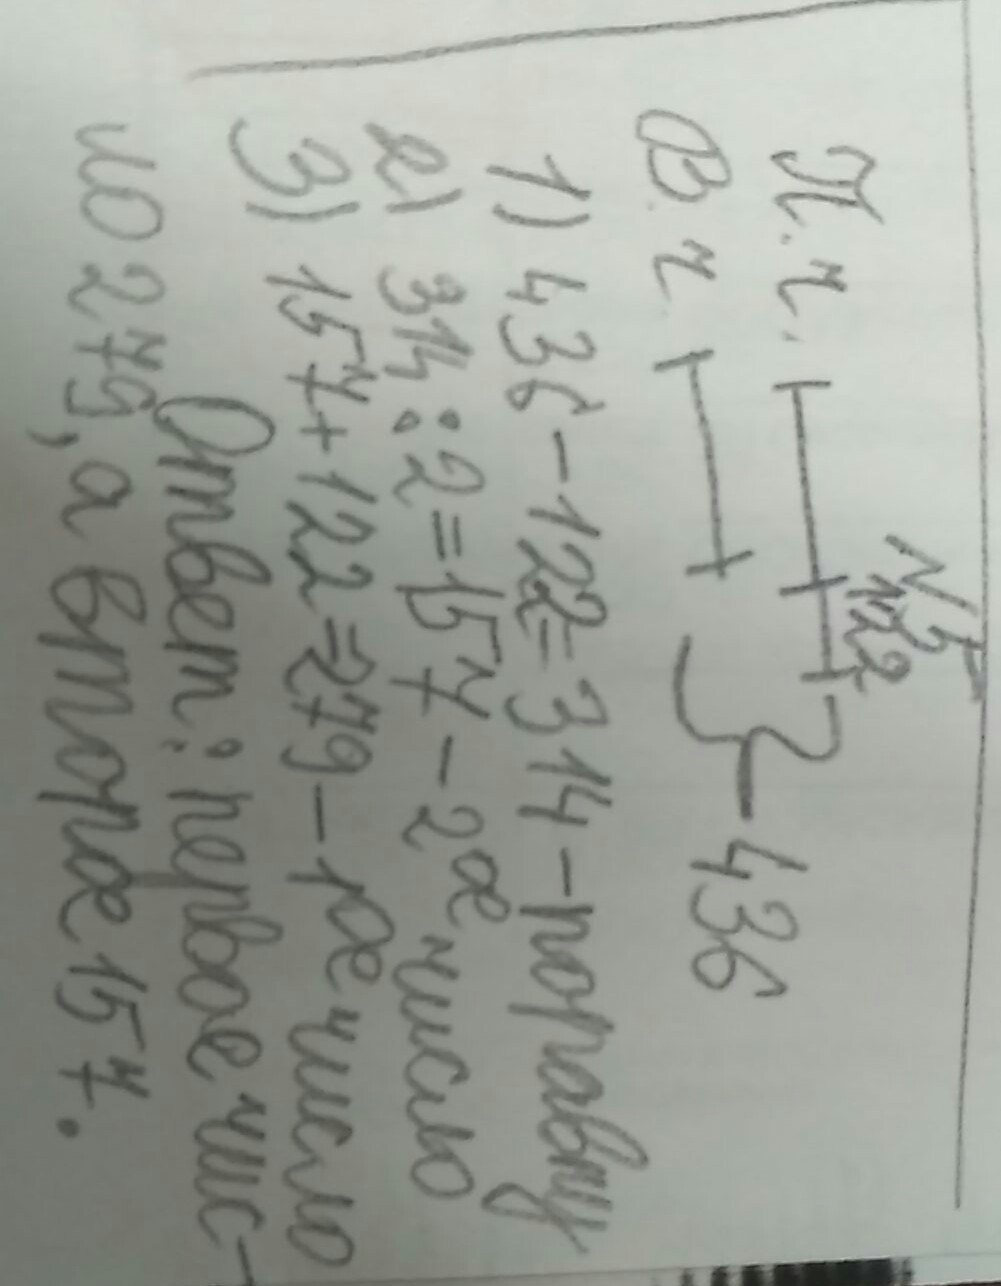 122
П. ч. 436
В. ч.
1) 436-122=314-поравну
2) 314:2=157-2ое число
3) 157+122=279-1ое число
Ответ: первое чис-
ло 279, а второе 157.